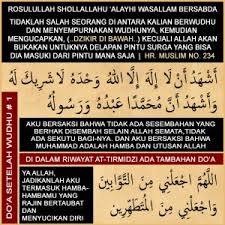 ROSULULLOH SHOLLALLOHU 'ALAYHI WASALLAM BERSABDA
TIDAKLAH SALAH SEORANG DI ANTARA KALIAN BERWUDHU
DAN MENYEMPURNAKAN WUDHUNYA, KEMUDIAN
MENGUCAPKAN, (..DZIKIR DI BAWAH..) KECUALI ALLAH AKAN
BUKAKAN UNTUKNYA DELAPAN PINTU SURGA YANG BISA
DIA MASUKI DARI PINTU MANA SAJA | HR. MUSLIM NO. 234
أَشْهَدُ أَنْ لَا إِلَهَ إِلَّا اللَّهُ وَحْدَهُ لَا شَرِيكَ لَهُ
وَأَشْهَدُ أَنَّ مُحَمَّدًا عَبْدُهُ وَرَسُولُهُ
AKU BERSAKSI BAHWA TIDAK ADA SESEMBAHAN YANG
BERHAK DISEMBAH SELAIN ALLAH SEMATA, TIDAK
ADA SEKUTU BAGI-NYA. DAN AKU BERSAKSI BAHWA
MUHAMMAD ADALAH HAMBA DAN UTUSAN ALLAH
DI DALAM RIWAYAT AT-TIRMIDZI ADA TAMBAHAN DO'A
YA ALLAH,
JADIKANLAH AKU
TERMASUK HAMBA-
HAMBAMU YANG
RAJIN BERTAUBAT
DAN
MENYUCIKAN DIRI
اللَّهُمَّ اجْعَلْنِي مِنَ التَّوَّابِينَ
وَاجْعَلْنِي مِنَ الْمُتَطَهِّرِينَ
DO'A SETELAH WUDHU # 1